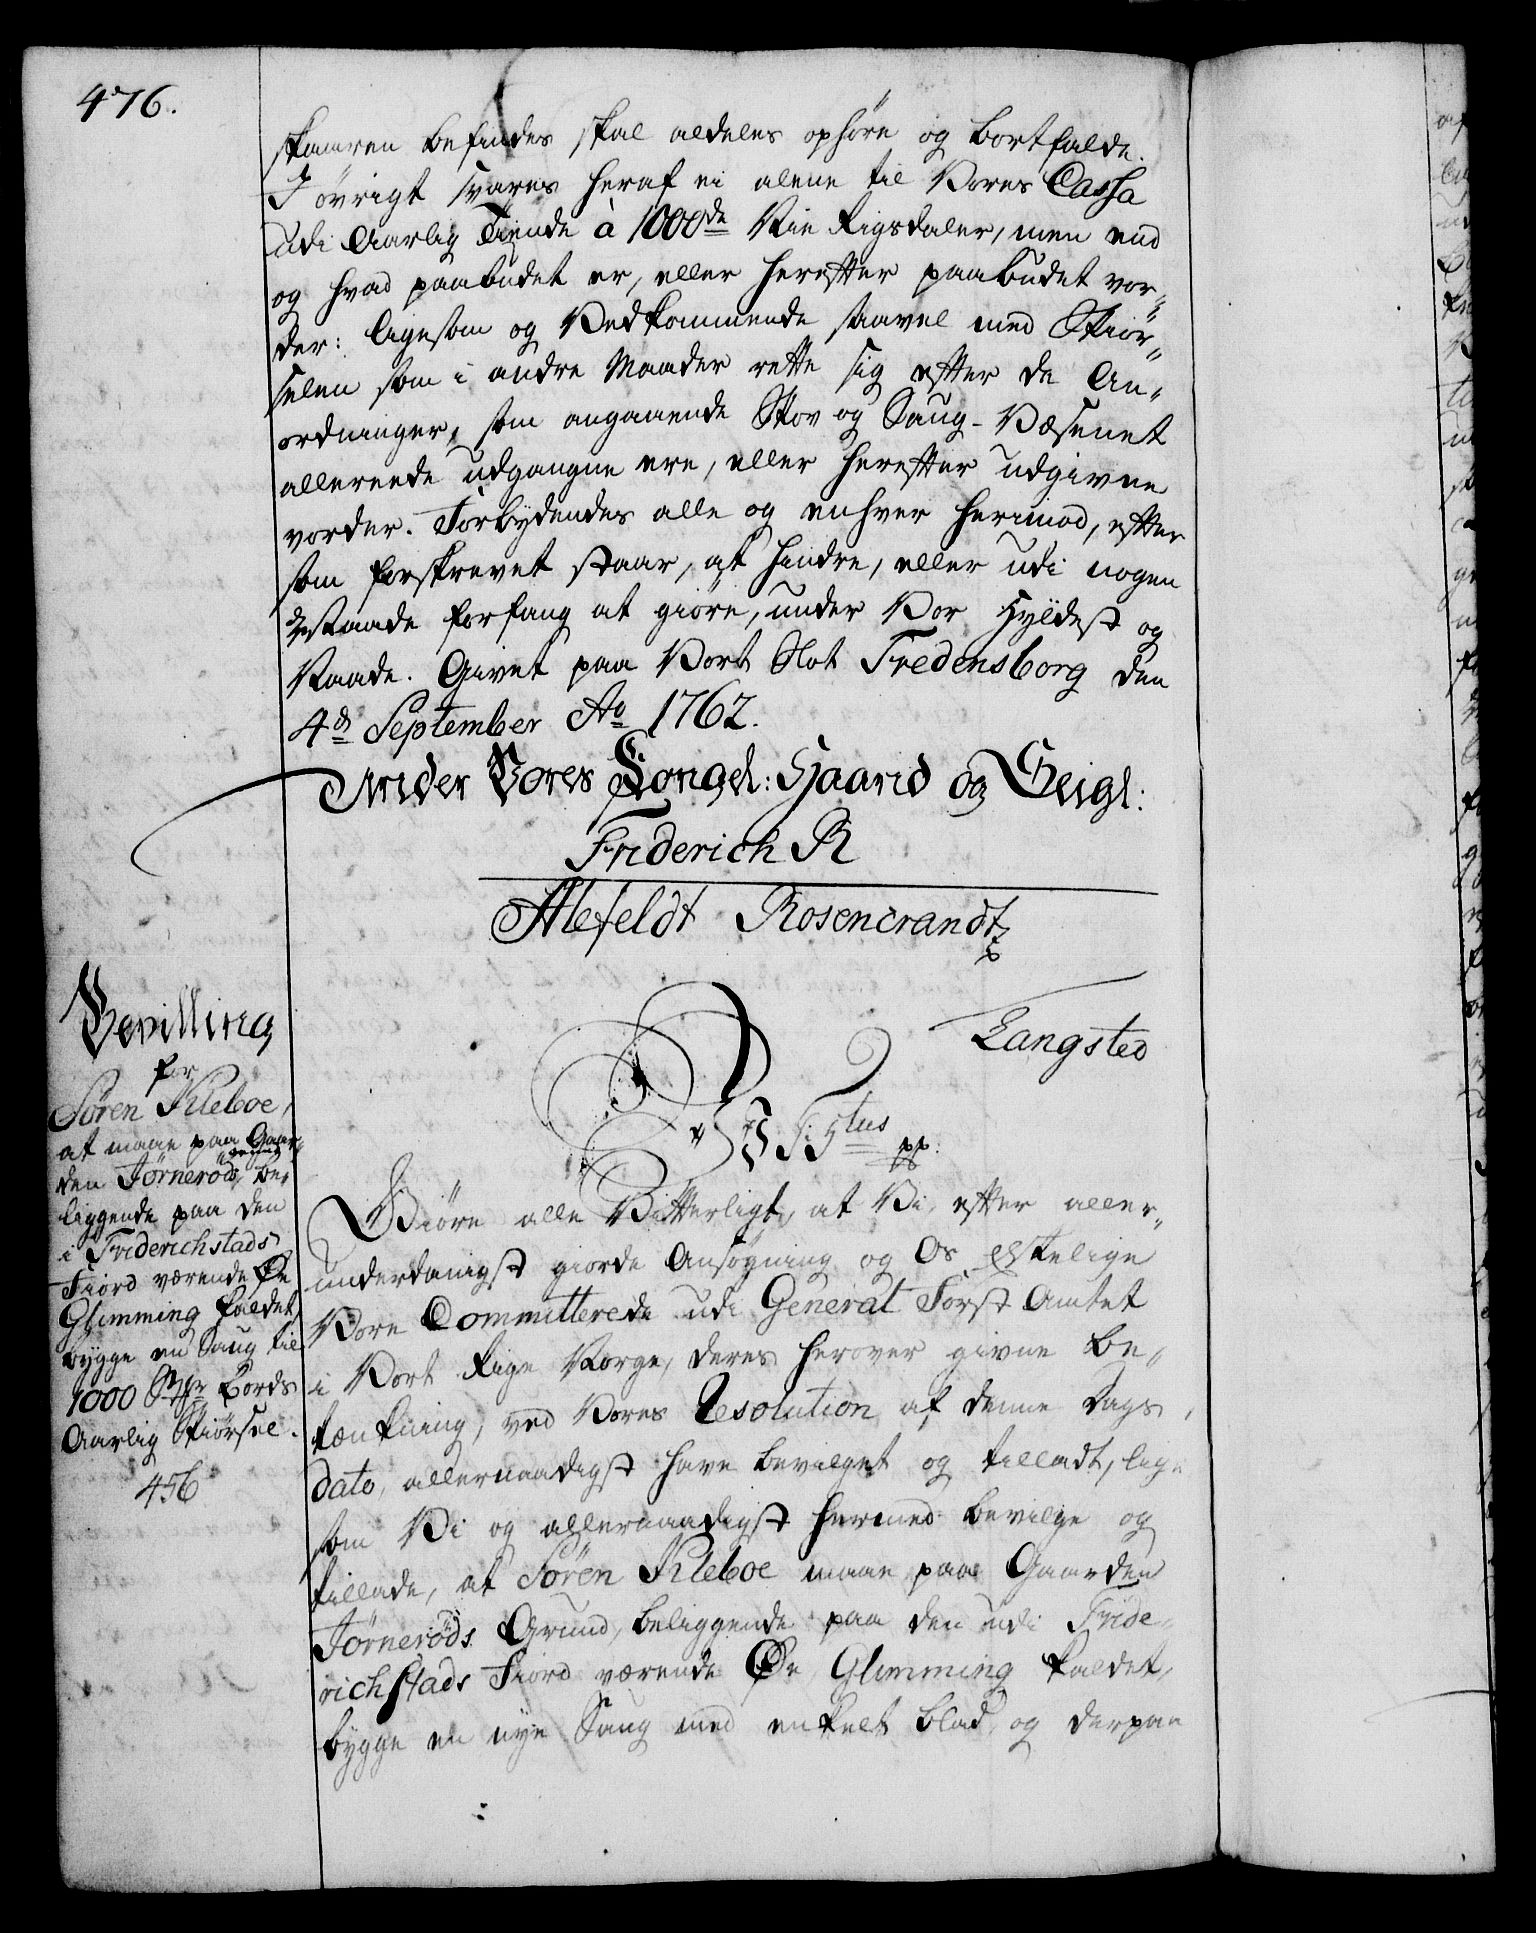 476.
skamren befindes skal aldeles ophöre og bortfalde.
I övrigt svares heraf ei alene til Vores Cassa
udi Aarlig Tiende à 1000de Nie Rigsdaler, men end
og hvad paabudet er, eller herefter paabudet vor„
der: ligesom og Vedkommende saavel med Skiör„
selen som i andre Maader rette sig efter de An„
ordninger, som angaaende Skov og Saug-Væsenet
allereede udgangne ere, eller herefter udgivne
vorder. Forbydendes alle og enhver herimod, efter
som forskrevet staar, at hindre, eller udi nogen
Maade forfang at giöre, under Vor Hyldest og
Naade. Givet paa Vort Slot Fredensborg den
4de September Ao 1762.
Under Vores Kongel: Haand og Seigl:
Friderich R
Alefeldt Rosencrandtz
Langsted
Bevilling
for
Sören Kleboe,
at maae paa Gaar„
den Jörneröds grund be„
liggende paa den
i Friderichstads
Fiord værende Øe
Glimming kaldet
bygge en Saug til
1000 Bords
Aarlig Skiörsel.
456
F 5tus pp:
Giöre alle Vitterligt, at Vi, efter aller„
underdanigst giorde Ansögning og Os elskelige
Vore Committerede udi General Forst Amtet
i Vort Rige Norge, deres herover givne be„
tænkning, ved Vores Resolution af denne Dags
dato, allernaadigst have bevilget og tilladt, lige
som Vi og allernaadigst hermed bevilge og
tillade, at Sören Kleboe maae paa Gaarden
Jörneröds Grund, beliggende paa den udi Fride„
richstads Fiord værende Øe Glimming kaldet,
bygge en nye Saug med enkelt blad, og derpaa